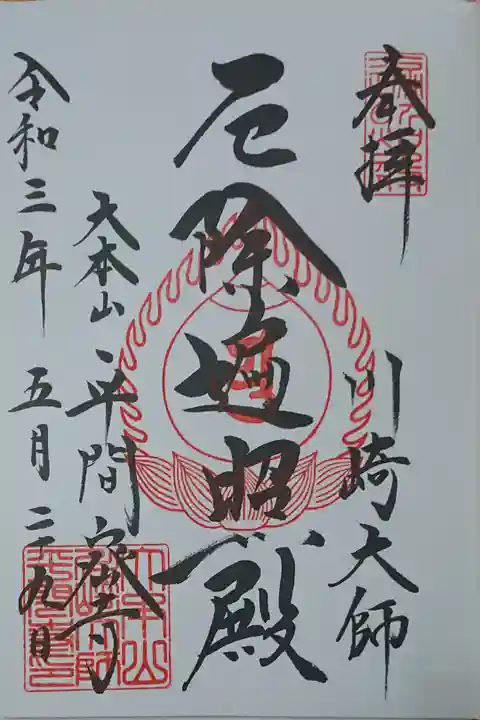 奉拝
川崎大師
厄除遍照殿
大本山 平間寺
令和三年 五月二十九日